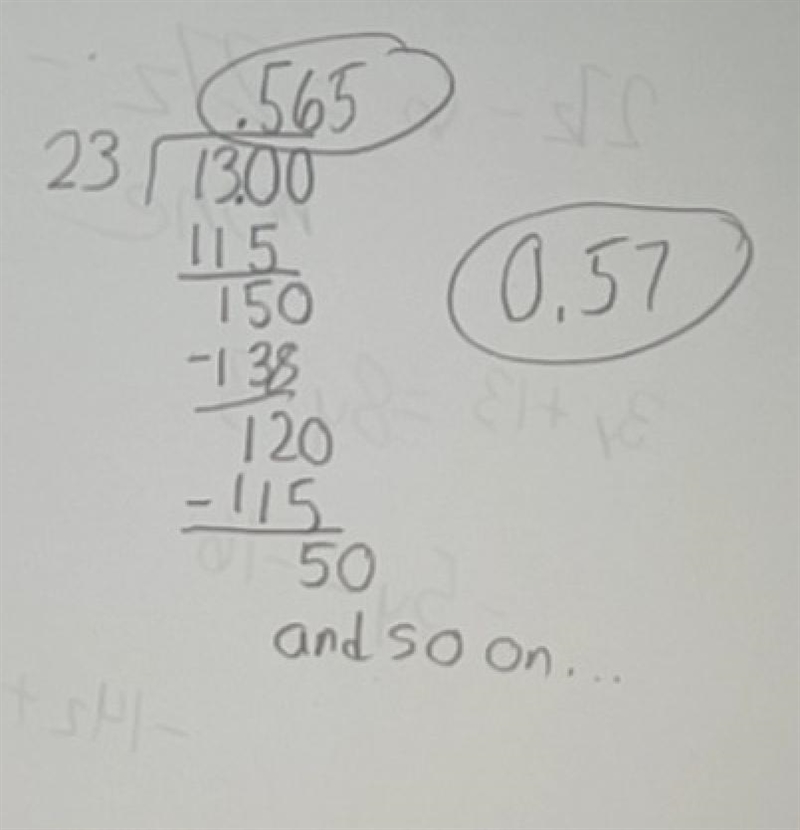 .565
23 13.00
115
150
0.57
-138
120
-115
50
and so on...